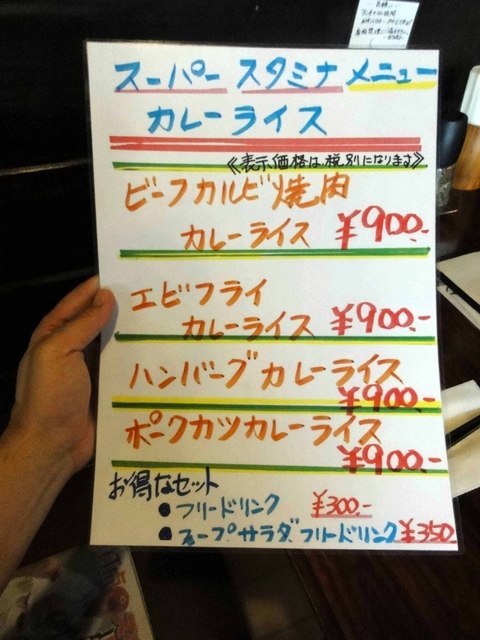 スーパー スタミナ メニュー
カレーライス
《表示価格は、税別になります》
ビーフカルビ焼肉
カレーライス ¥900.-
エビフライ
カレーライス ¥900.-
ハンバーグカレーライス
¥900.-
ポークカツカレーライス
¥900.-
お得なセット
●フリードリンク ¥300.-
●スープサラダフリードリンク¥350